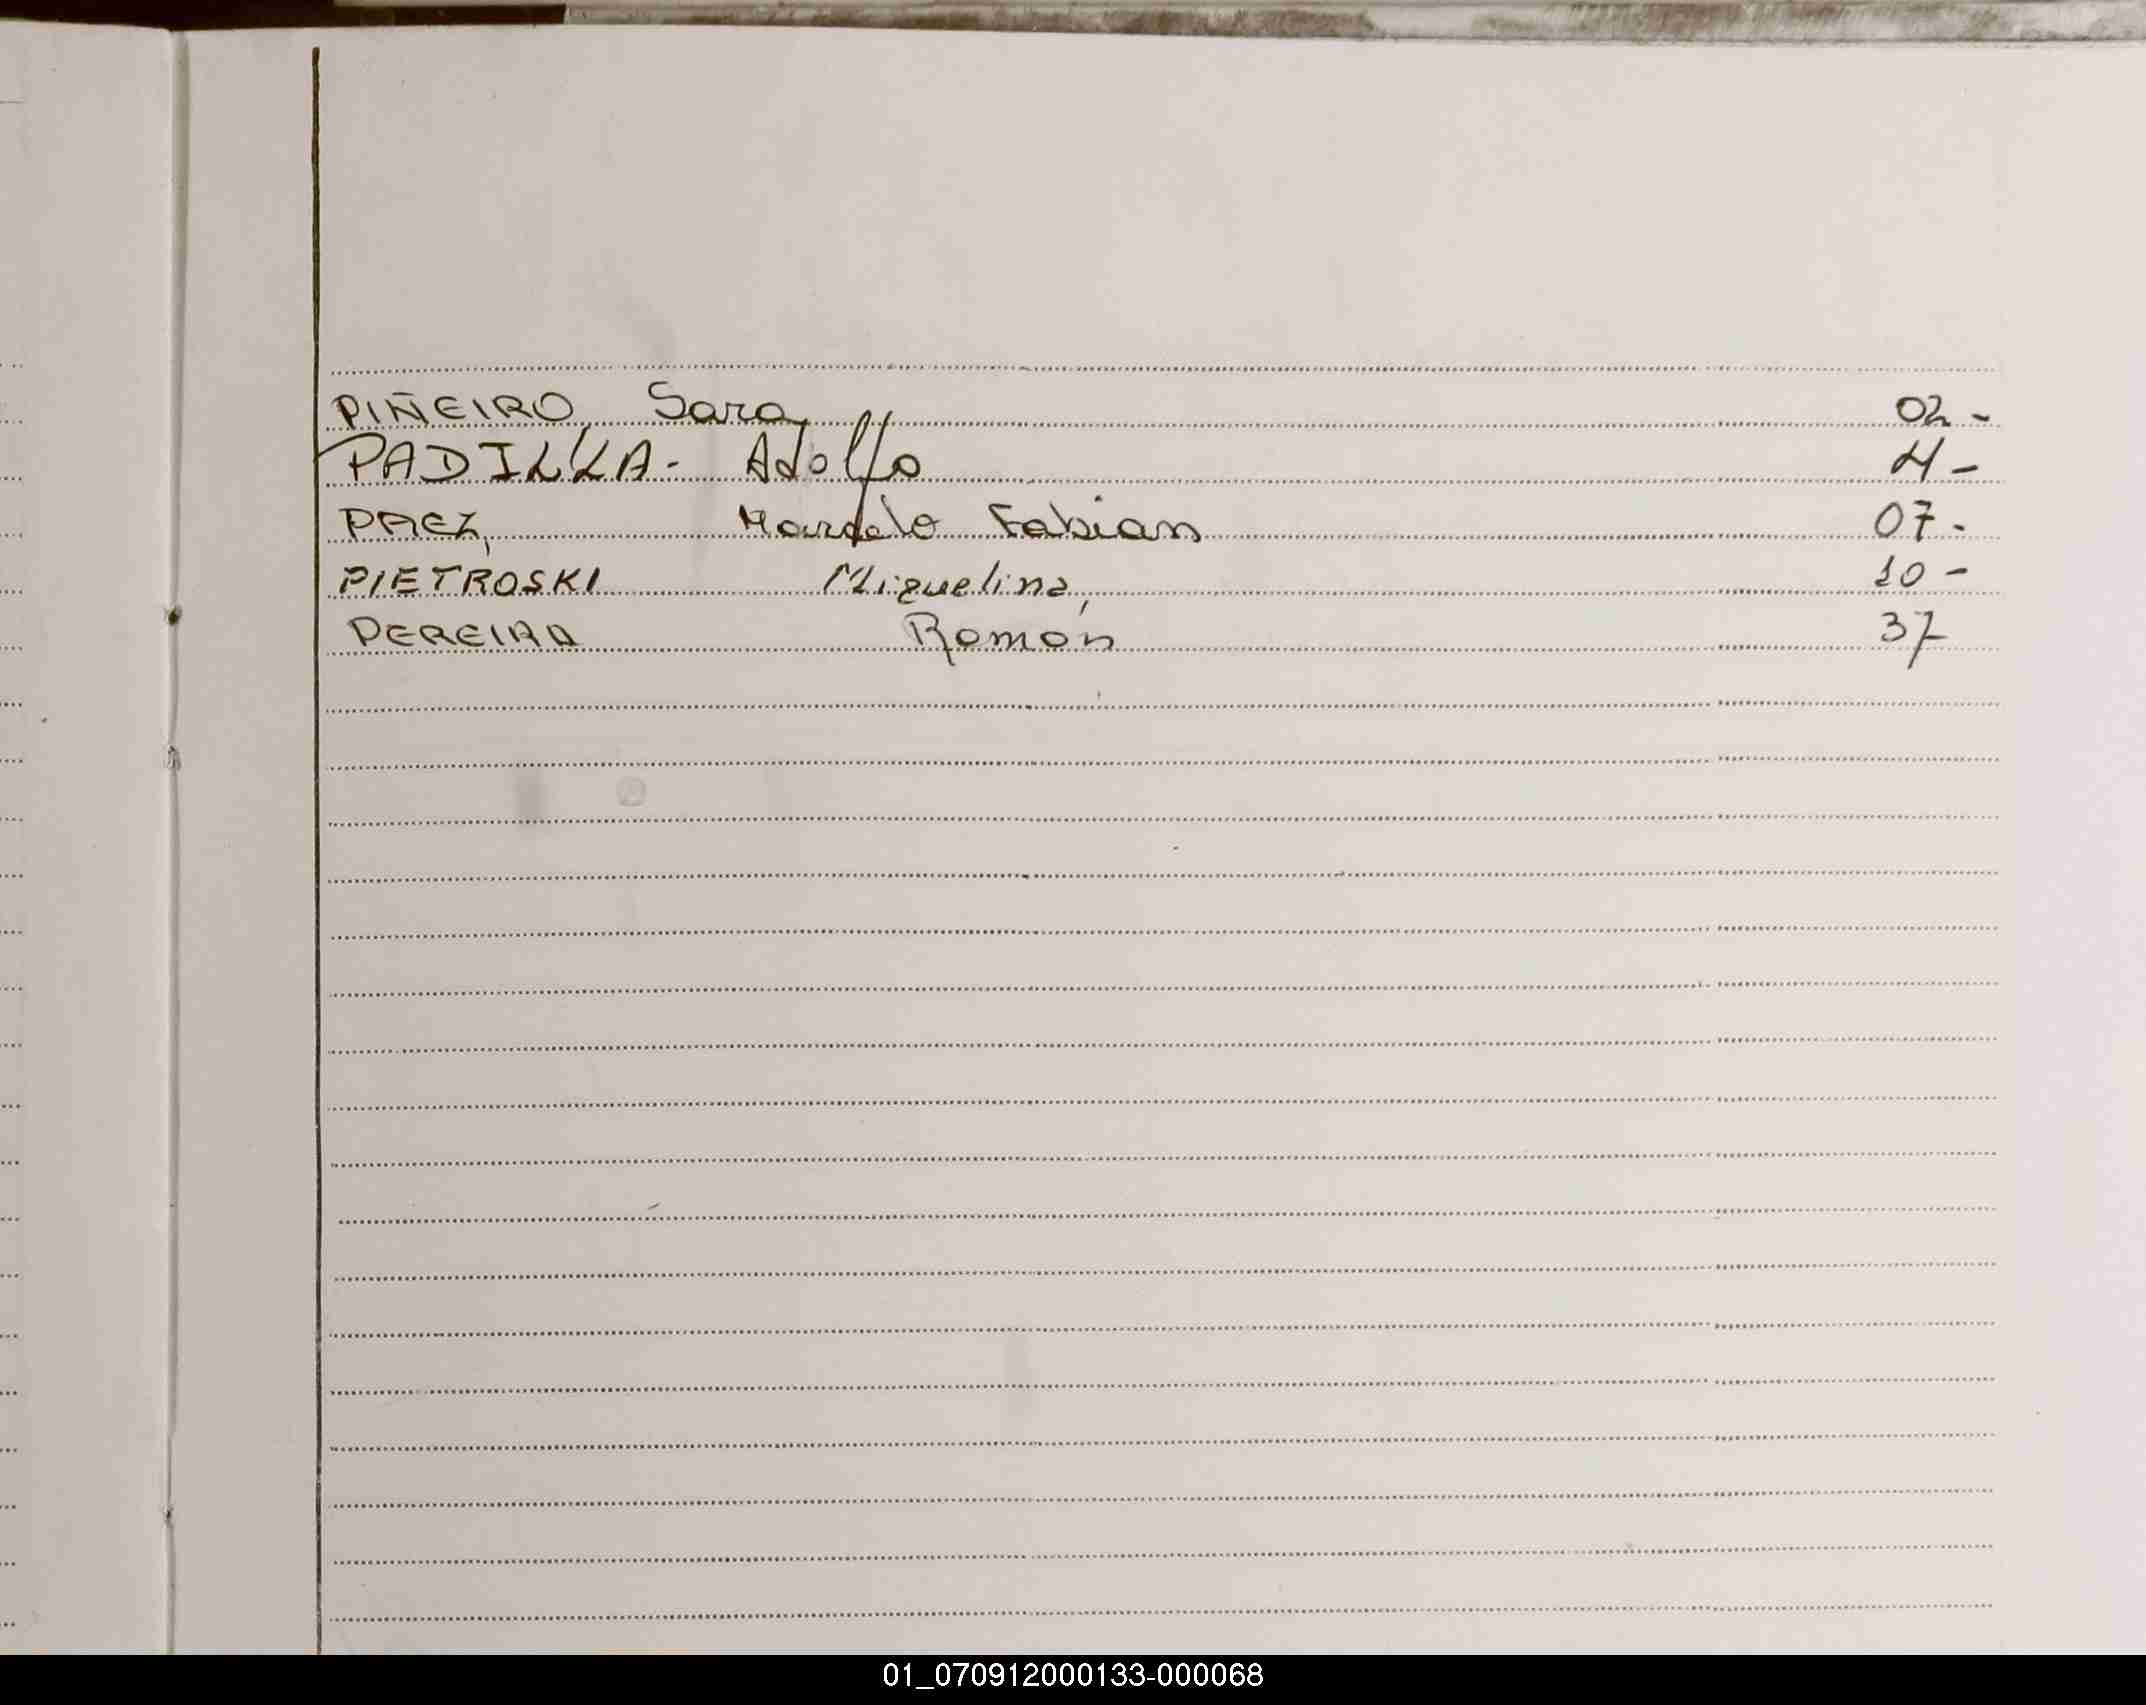 PIÑEIRO, Sara 02-
PADILLA- Adolfo 4-
PAEZ, Marcelo Fabian 07-
PIETROSKI Miguelina, 10-
PEREIRA Ramón 37
01_070912000133-000068